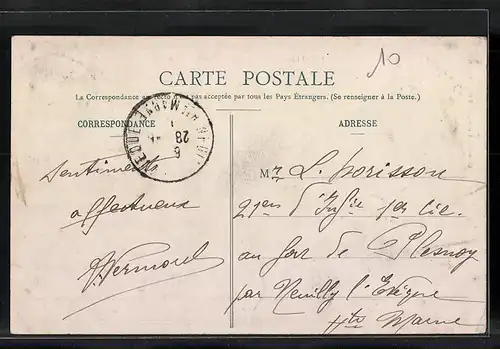 10
CARTE POSTALE
La Correspondance au recto n'est pas acceptée par tous les Pays Étrangers. (Se renseigner à la Poste.)
CORRESPONDANCE
ADRESSE
6
28
Sentiments
affectueux
Vermorel
Mr L. Morisson
21em d'Infie 1er Cie.
au fort de Plesnoy
par Neuilly l'Evêque
Hte Marne